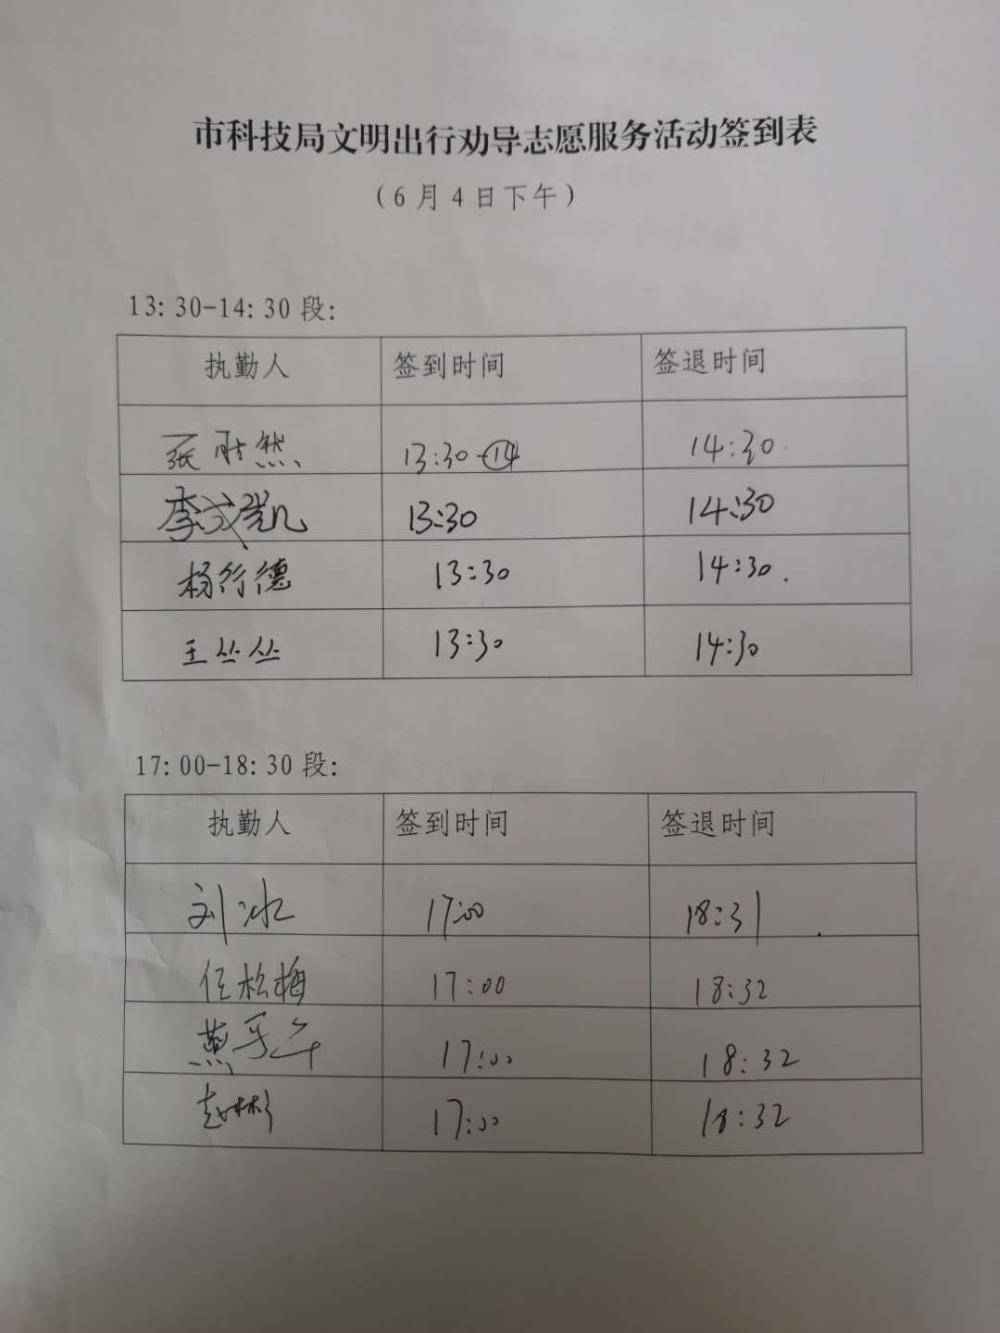 市科技局文明出行劝导志愿服务活动签到表
（6月4日下午）
13:30-14:30段:
执勤人 签到时间 签退时间
张胜然 13:30 14:30
李成凯 13:30 14:30
杨行德 13:30 14:30.
王丛丛 13:30 14:30
17:00-18:30段:
执勤人 签到时间 签退时间
刘冰 17:00 18:31
任松梅 17:00 18:32
燕 17:00 18:32
赵彬 17:00 18:32